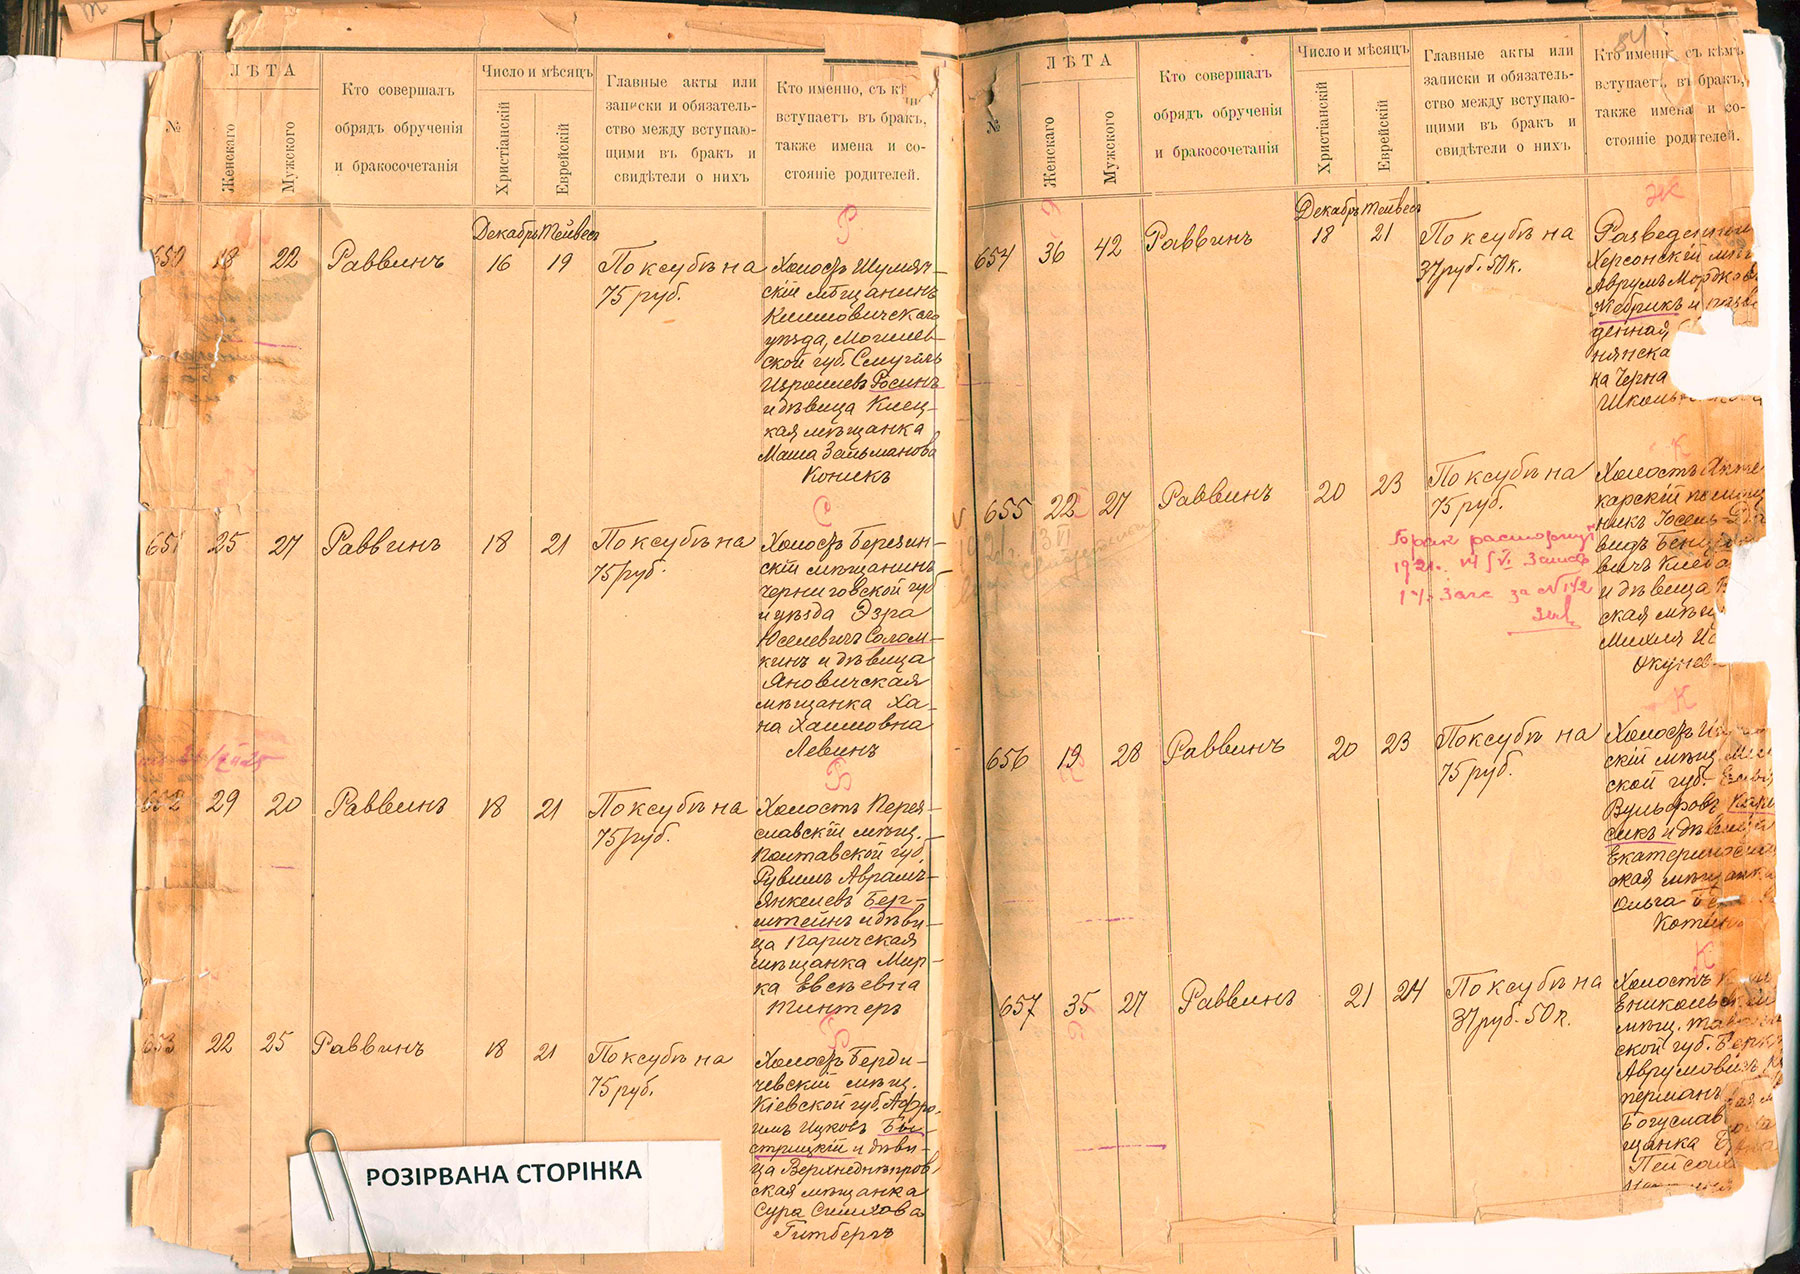 №
ЛѢТА
Женскаго
Мужского
Кто совершалъ
обрядъ обрученія
и бракосочетанія
Число и мѣсяцъ
Христіанскій
Еврейскій
Главные акты или
записки и обязатель-
ство между вступаю-
щими въ бракъ и
свидѣтели о нихъ
Кто именно, съ кѣ
вступаетъ въ бракъ,
также имена и со-
стояніе родителей.
Декабрь Тейвесъ
650 18 22 Раввинъ 16 19 По ксубѣ на
75 руб.
Холостъ Шумяч-
скій мѣщанинъ
Климовичскаго
уѣзда, Могилев-
ской губ. Смуилъ
Израилевъ Росинъ
и дѣвица Клец-
кая мѣщанка
Маша Зальманова
Конискъ
651 25 27 Раввинъ 18 21 По ксубѣ на
75 руб.
Холостъ Березин-
скій мѣщанинъ
Черниговской губ
и уѣзда Эзра
Юселевичъ Солом-
кинъ и дѣвица
Яновичская
мѣщанка Ха-
на Хаимовна
Левинъ
652 29 20 Раввинъ 18 21 По ксубѣ на
75 руб.
Холостъ Перея-
славскій мѣщ.
Полтавской губ.
Рувимъ Аврамъ-
Янкелевъ Бер-
штейнъ и дѣви-
ца Паричская
мѣщанка Мир-
ка Евсѣевна
Тинтеръ
653 22 25 Раввинъ 18 21 По ксубѣ на
75 руб.
Холостъ Берди-
чевскій мѣщ.
Кіевской губ. Афро-
имъ Ицковъ Бы-
стрицкій и дѣви-
ца Верхнеднѣпров
ская мѣщанка
Сура Симхова
Гитбергъ
РОЗІРВАНА СТОРІНКА
84
№
ЛѢТА
Женскаго
Мужского
Кто совершалъ
обрядъ обрученія
и бракосочетанія
Число и мѣсяцъ
Христіанскій
Еврейскій
Главные акты или
записки и обязатель-
ство между вступаю-
щими въ бракъ и
свидѣтели о нихъ
Кто именно, съ кѣмъ
вступаетъ въ бракъ,
также имена и со-
стояніе родителей.
Декабрь Тейвесъ
Ж
654 36 42 Раввинъ 18 21 По ксубѣ на
37 руб. 50 к.
Разведенный
Херсонскій мѣщ
Аврумъ Мордков
Жебрикъ и разве
денная
нянска
ка Черна
Школь
К
655 22 27 Раввинъ 20 23 По ксубѣ на
75 руб.
Холостъ Апте
карскій помощ
никъ Іосель-Да
видъ Бен
вичъ Клеба
и дѣвица
ская мѣщ
Михля
Окунев
Брак расторгнут
1921.
за №142
К
656 19 28 Раввинъ 20 23 По ксубѣ на
75 руб.
Холостъ
скій мѣщ.
ской губ.
Вульфовъ
сикъ и дѣвица
Екатериносла
ская мѣщанка
Ольга
Котля
К
657 35 27 Раввинъ 21 24 По ксубѣ на
37 руб. 50 к.
Холостъ
Еникольскій
мѣщ. Таври
ской губ. Берка
Аврумовичъ
перман
Богуслав
щанка
Пейсах